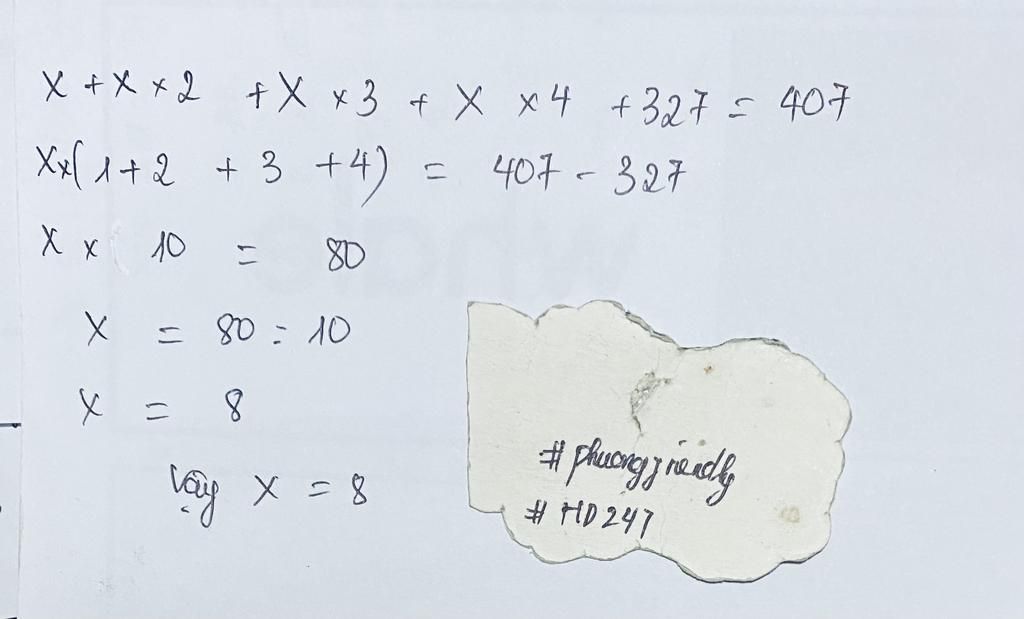 X + X × 2 + X × 3 + X × 4 + 327 = 407
X × ( 1 + 2 + 3 + 4 ) = 407 - 327
X × 10 = 80
X = 80 : 10
X = 8
Vậy X = 8
# phuongfriendly
# HD247